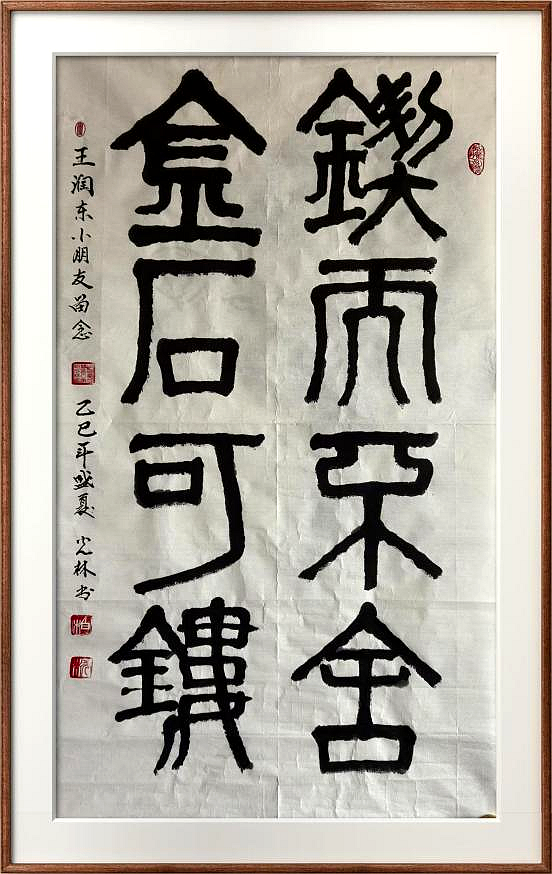 鍥而不舍
金石可鏤
王润东小朋友留念
乙巳年盛夏 光林书